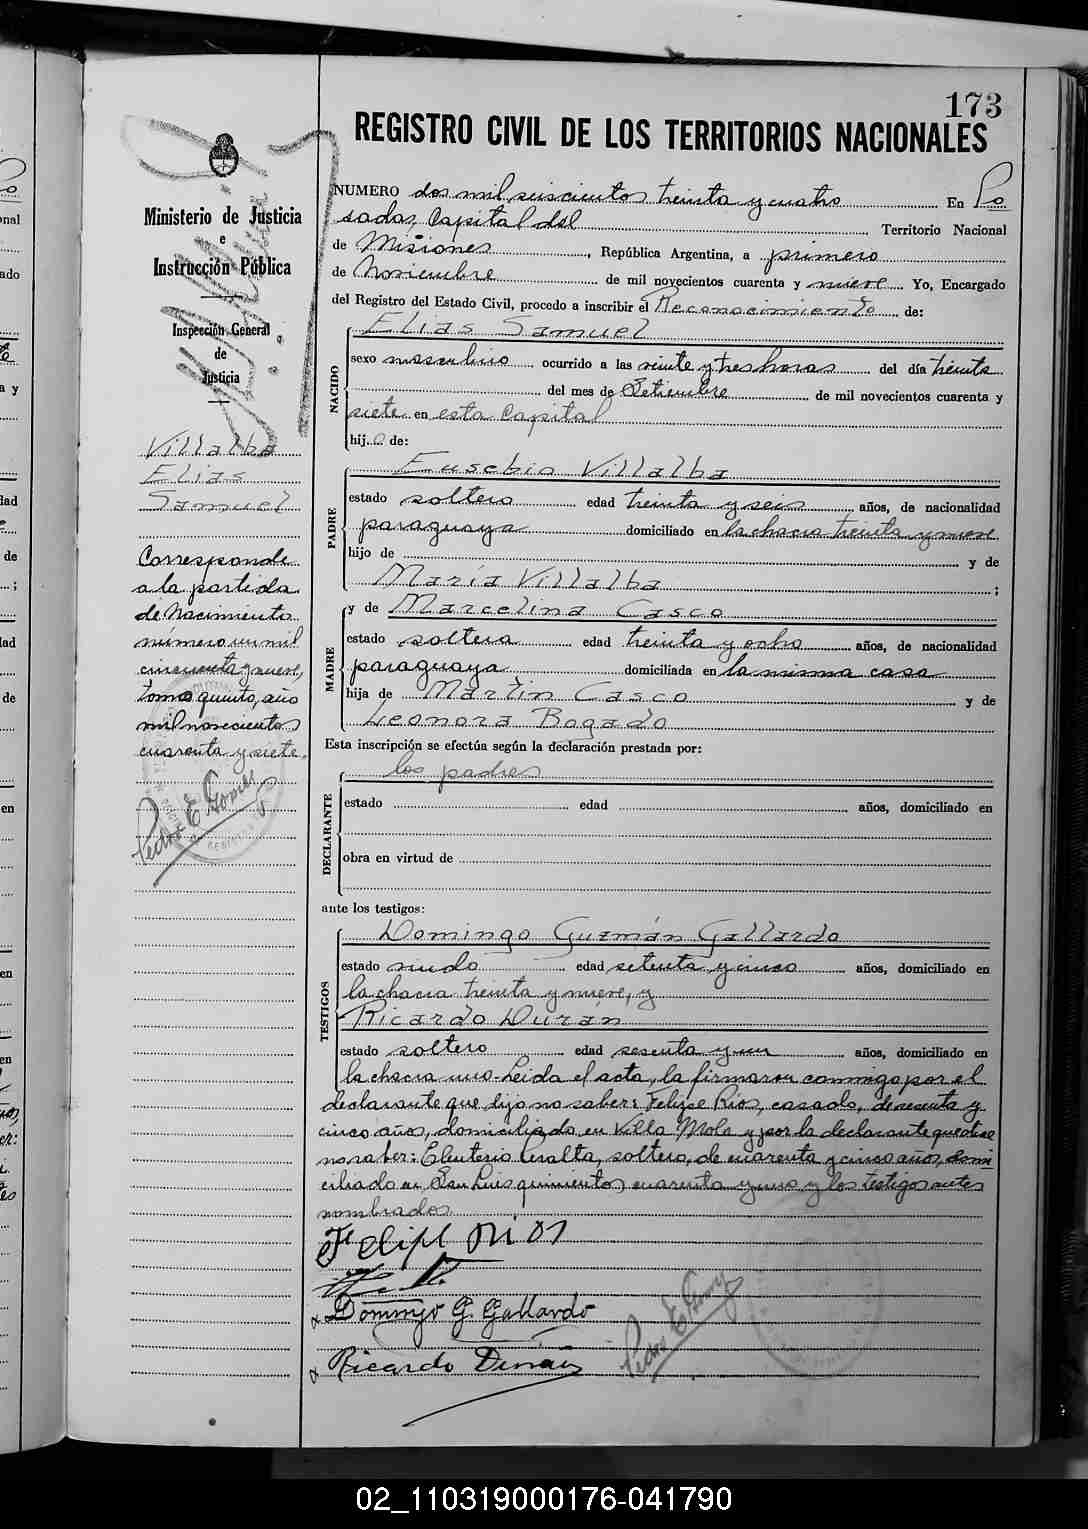 173
REGISTRO CIVIL DE LOS TERRITORIOS NACIONALES
Ministerio de Justicia
e
Instrucción Pública
Inspección General
de
Justicia
Villalba
Elias
Samuel
Corresponde
a la partida
de Nacimiento
número un mil
cincuenta y nueve,
tomo quinto, año
mil novecientos
cuarenta y siete.
Pedro E
NUMERO dos mil seiscientos treinta y cuatro En Po
sadas, Capital del Territorio Nacional
de Misiones, República Argentina, a primero
de Noviembre de mil novecientos cuarenta y nueve Yo, Encargado
del Registro del Estado Civil, procedo a inscribir el Reconocimiento de:
NACIDO
Elias Samuel
sexo masculino ocurrido a las veinte y tres horas del día treinta
del mes de Setiembre de mil novecientos cuarenta y
siete en esta Capital
hijo de:
PADRE
Eusebio Villalba
estado soltero edad treinta y seis años, de nacionalidad
paraguaya domiciliado en la chacra treinta y nueve
hijo de y de
María Villalba ;
MADRE
y de Marcelina Casco
estado soltera edad treinta y ocho años, de nacionalidad
paraguaya domiciliada en la misma casa
hija de Martin Casco y de
Leonora Bogado
Esta inscripción se efectúa según la declaración prestada por:
DECLARANTE
los padres
estado edad años, domiciliado en
obra en virtud de
ante los testigos:
TESTIGOS
Domingo Guzmán Gallardo
estado viudo edad setenta y cinco años, domiciliado en
la chacra treinta y nueve, y
Ricardo Durán
estado soltero edad sesenta y un años, domiciliado en
la chacra uno. Leida el acta, la firmaron conmigo por el
declarante que dijo no saber: Felipe Rios, casado, de sesenta y
cinco años, domiciliado en Villa Mola y por la declarante que dice
no saber: Eleuterio Peralta, soltero, de cuarenta y cinco años, domi
ciliado en San Luis quinientos cuarenta y uno y los testigos antes
nombrados.
Felipe Rios
Domingo G. Gallardo
Ricardo Duran
Pedro E
02_110319000176-041790